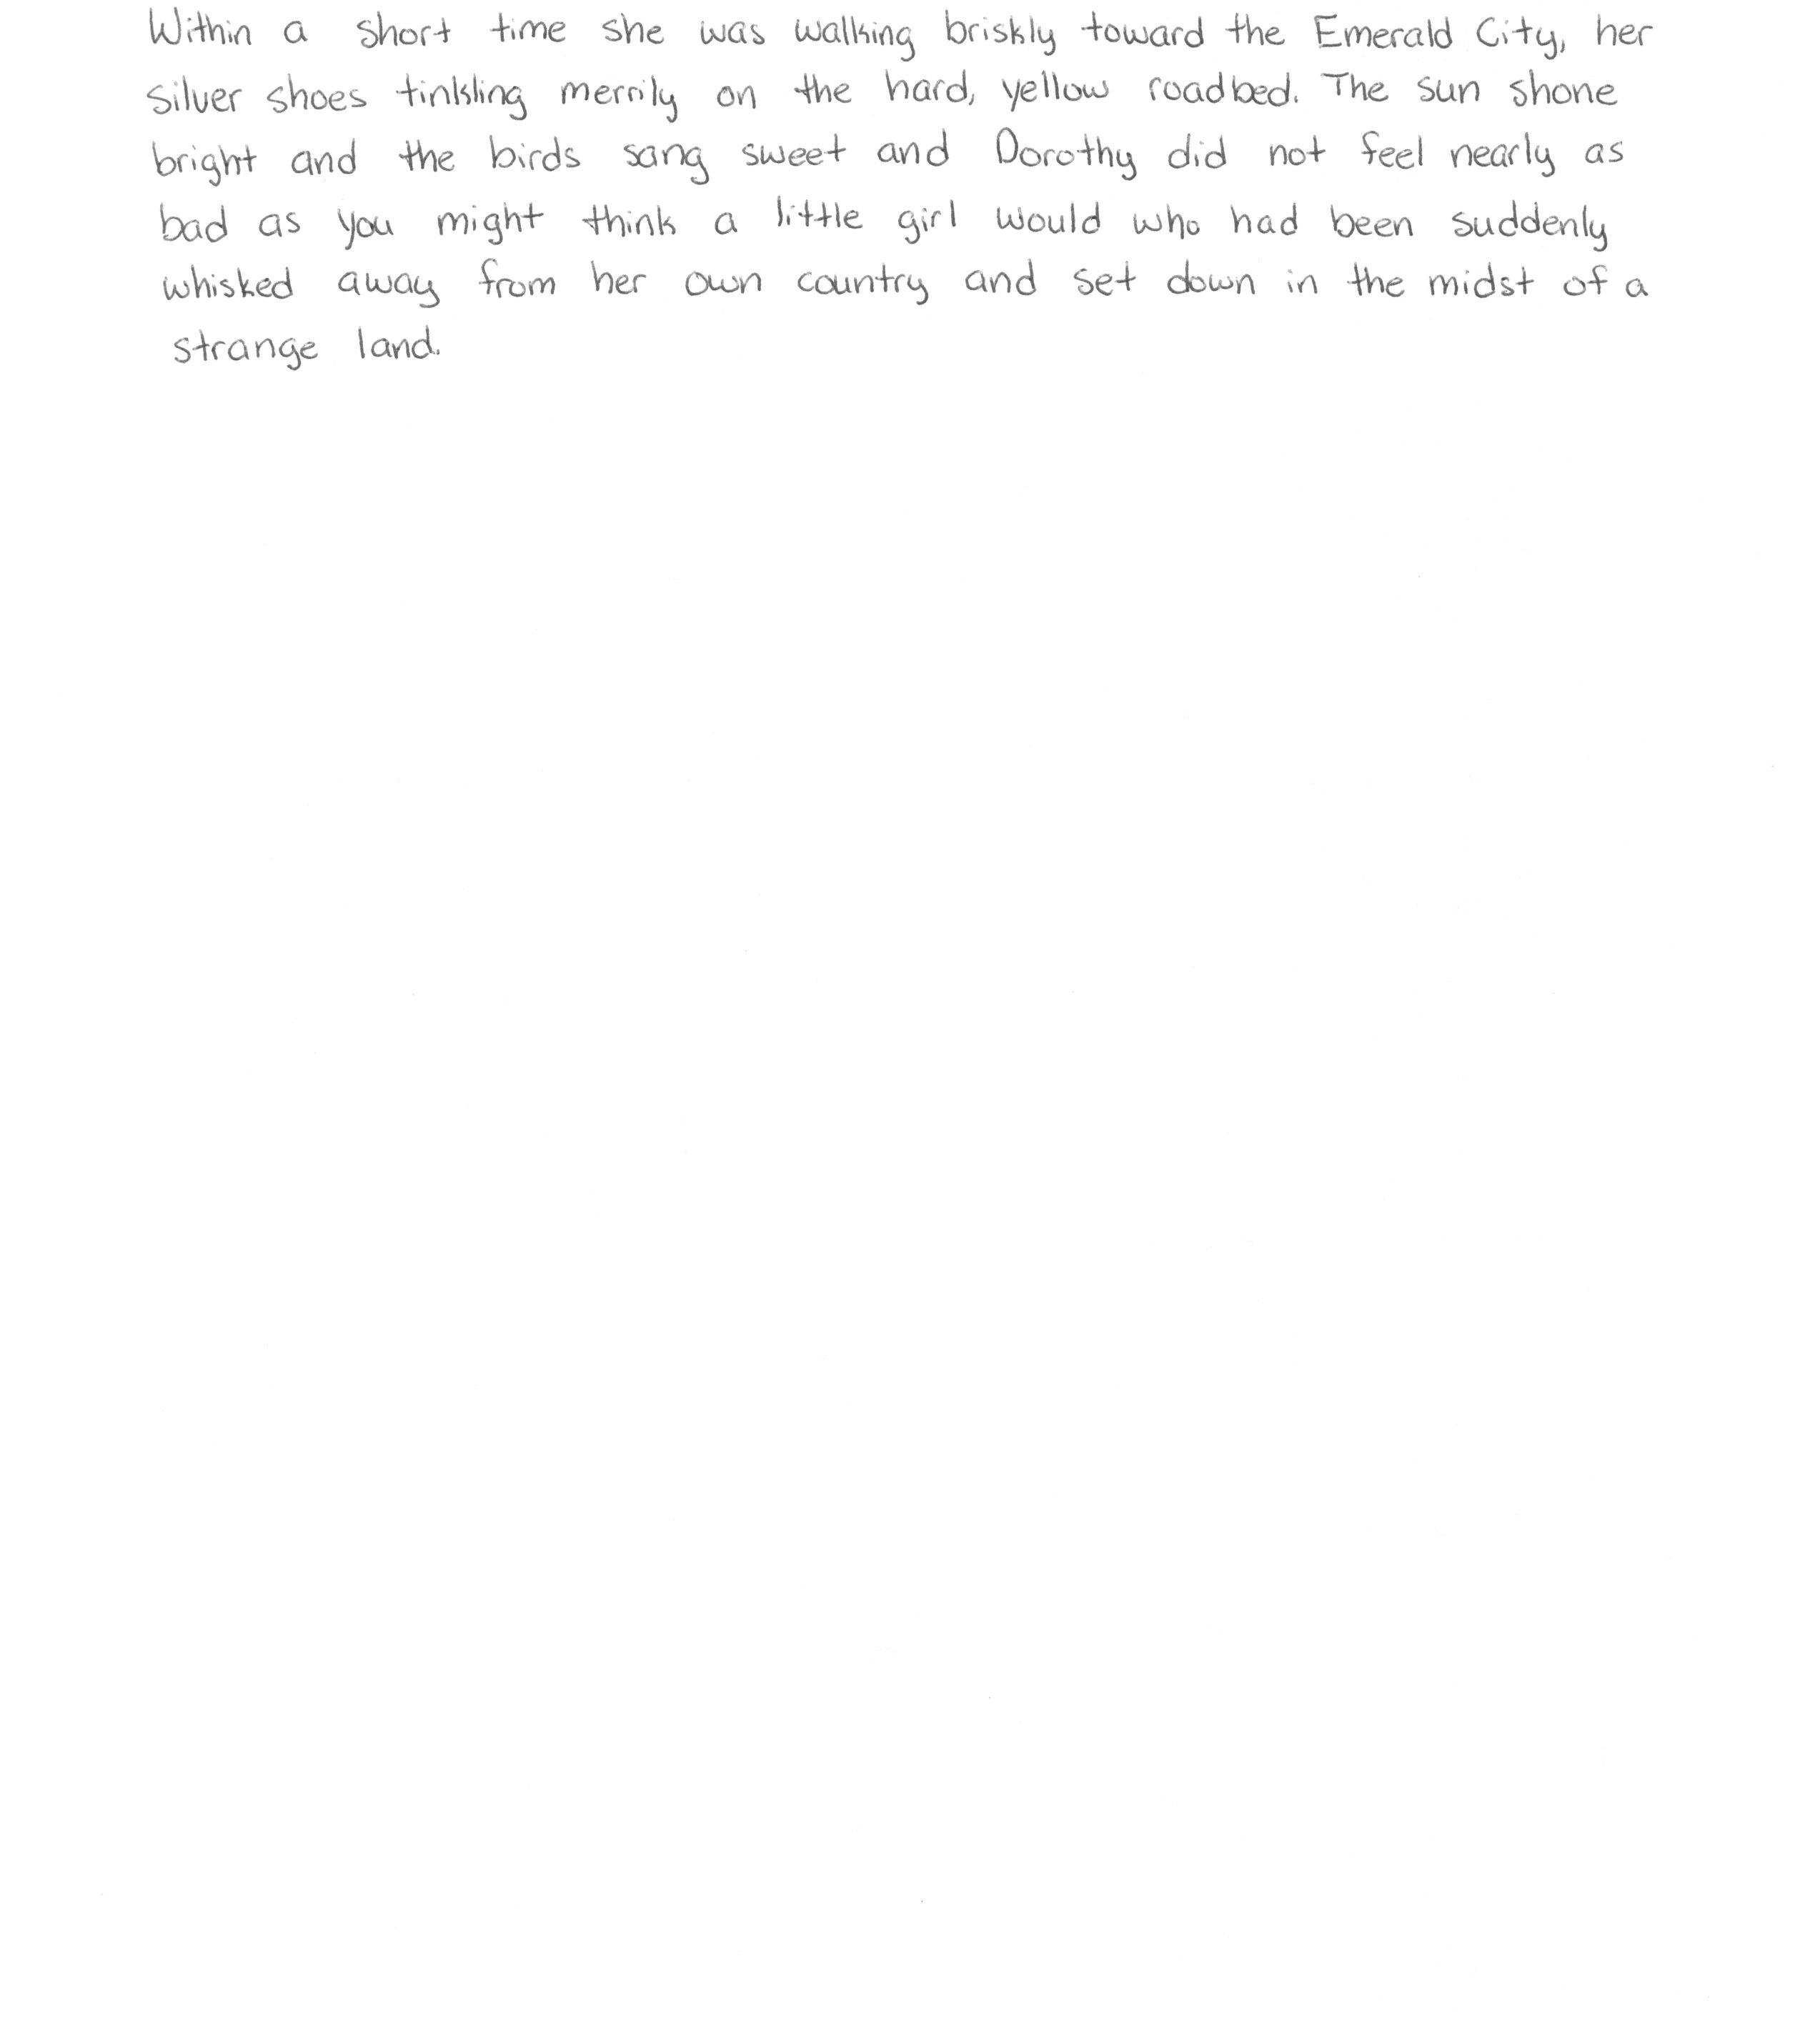 Within a short time she was walking briskly toward the Emerald City, her
silver shoes tinkling merrily on the hard, yellow roadbed. The sun shone
bright and the birds sang sweet and Dorothy did not feel nearly as
bad as you might think a little girl would who had been suddenly
whisked away from her own country and set down in the midst of a
strange land.